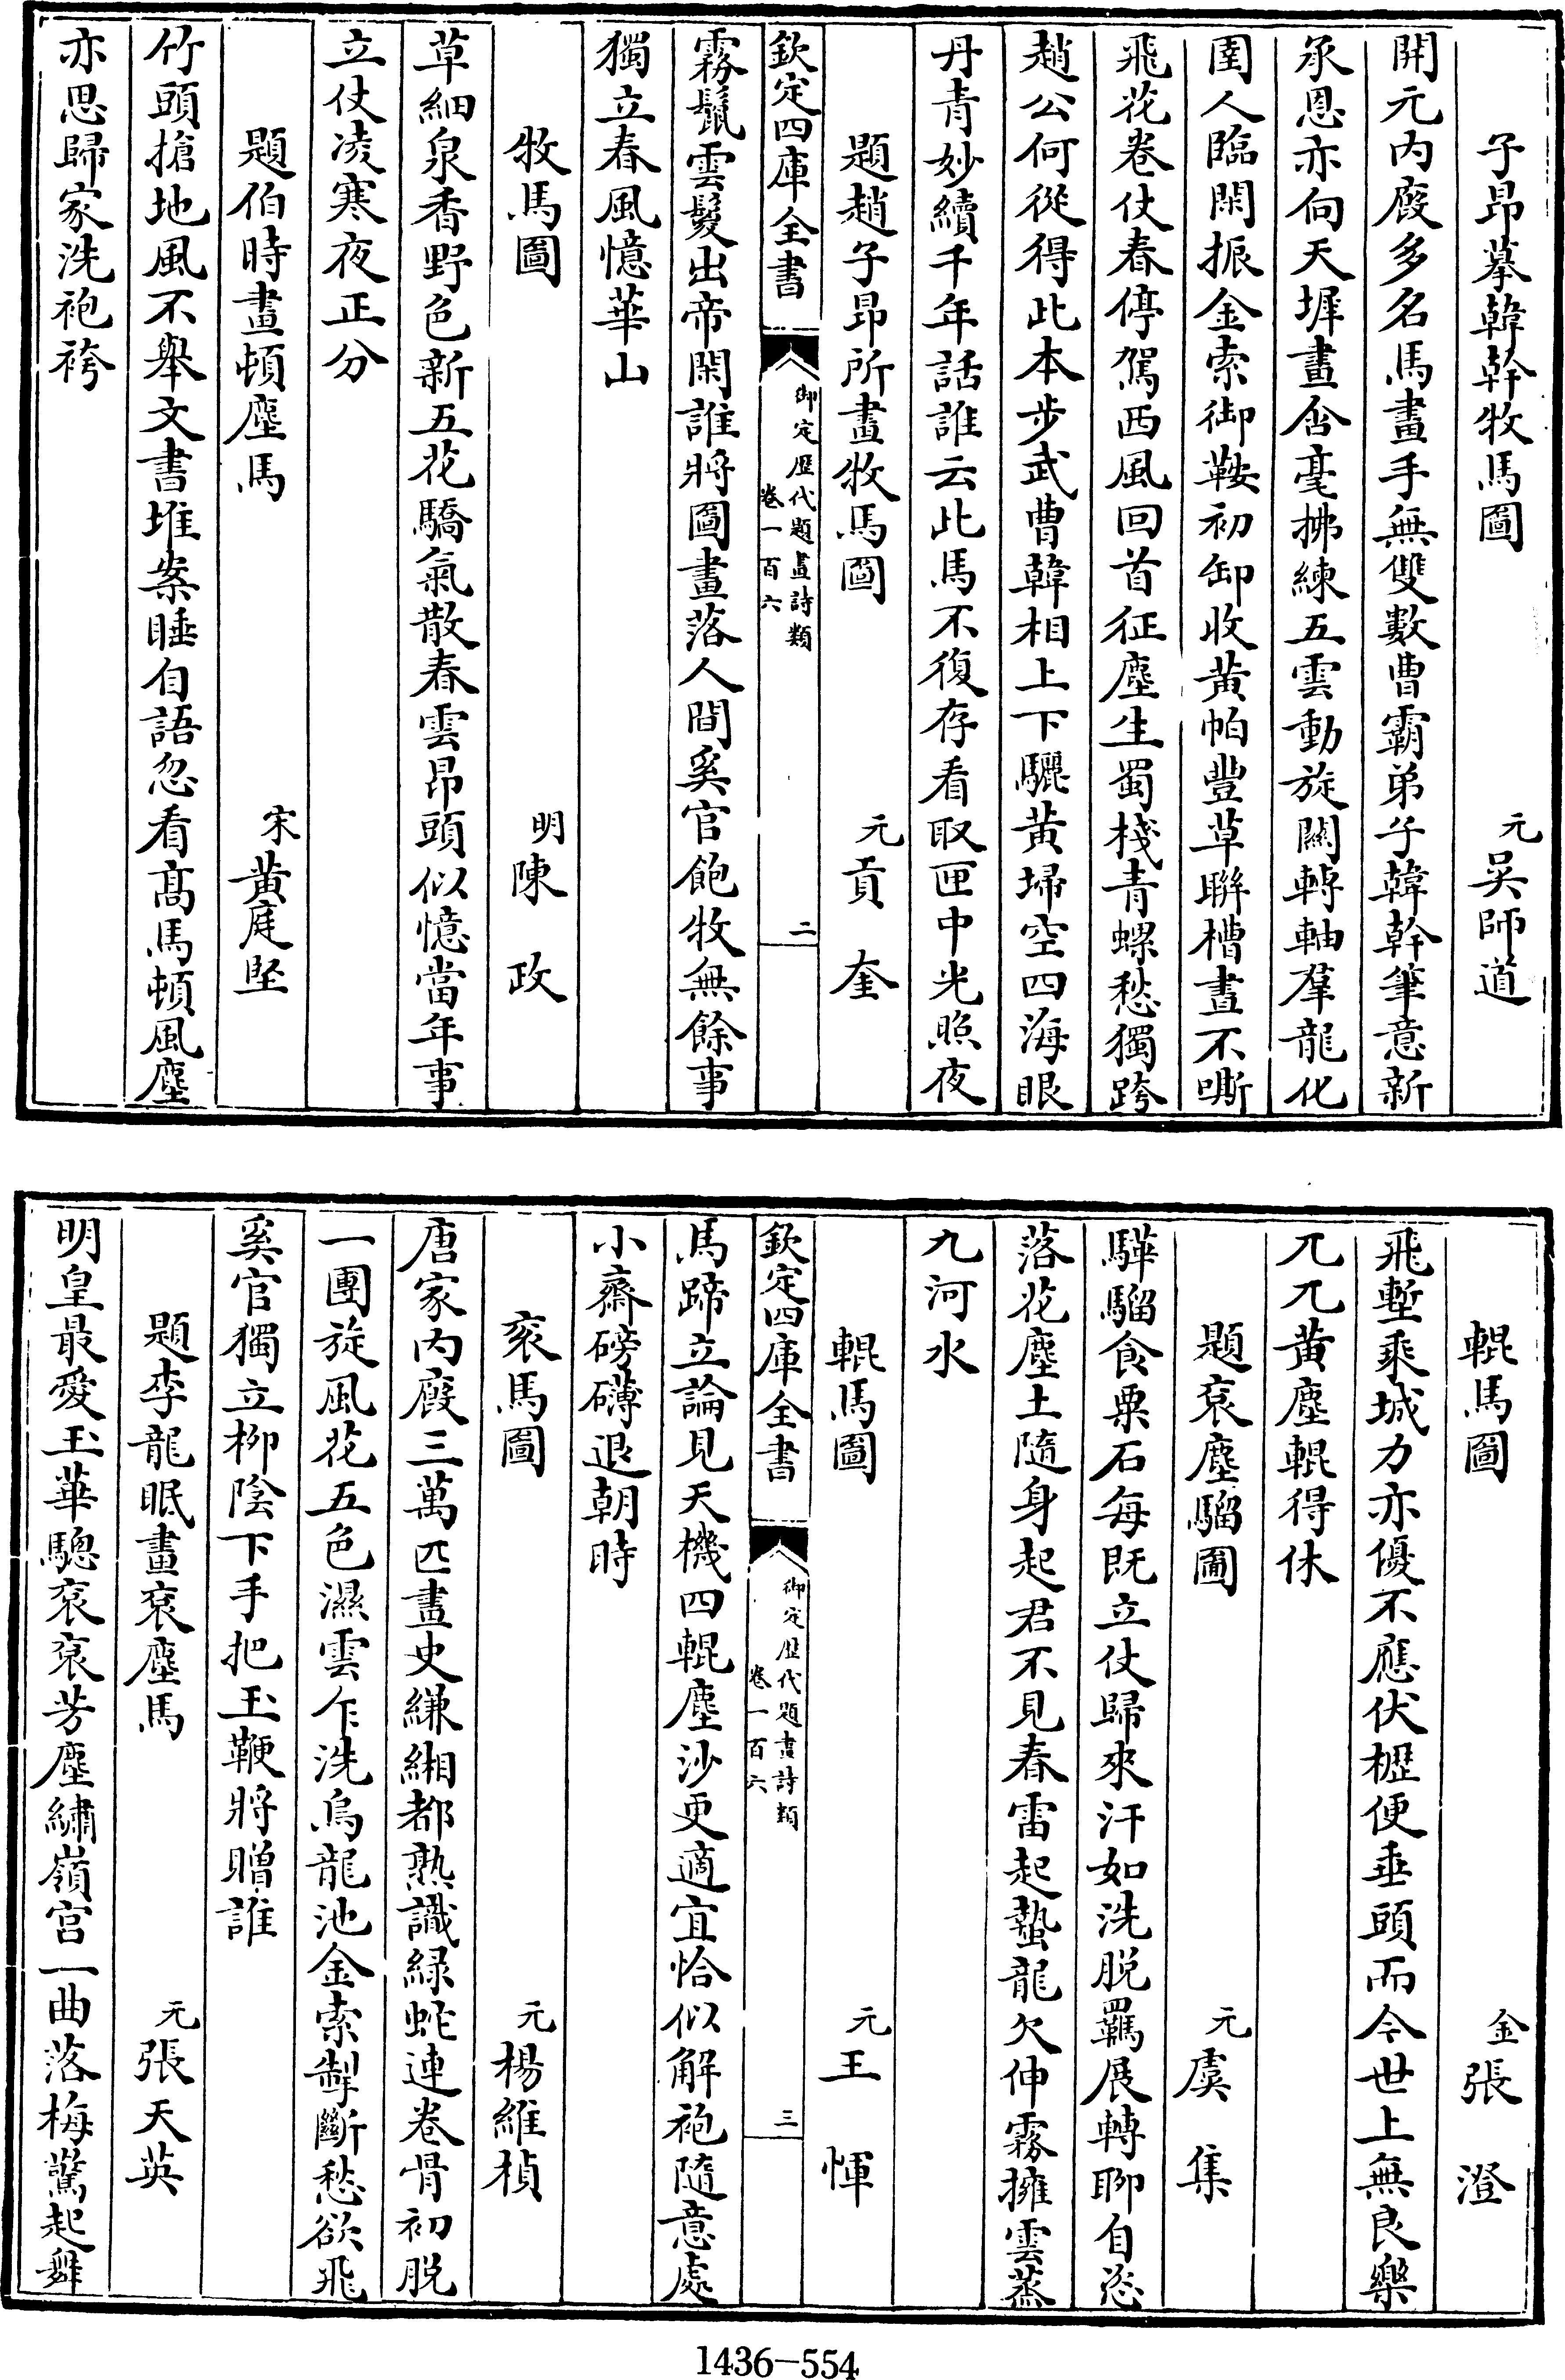 子昂摹韓幹牧馬圖 元吳師道
開元内廄多名馬畫手無雙數曹霸弟子韓幹筆意新
承恩亦向天墀畫含毫拂練五雲動旋闢轉軸羣龍化
圉人臨閑振金索御鞍初卸收黄帕豐草聨槽晝不嘶
飛花卷仗春停駕西風回首征塵生蜀棧青螺愁獨跨
趙公何從得此本步武曹韓相上下驪黄埽空四海眼
丹青妙續千年話誰云此馬不復存看取匣中光照夜
題趙子昂所畫牧馬圖 元貢 奎
欽定四庫全書 御定歴代題畫詩類 卷一百六 二
霧鬛雲鬉出帝閑誰將圖畫落人間奚官飽牧無餘事
獨立春風憶華山
牧馬圖 明陳 政
草細泉香野色新五花驕氣散春雲昂頭似憶當年事
立仗凌寒夜正分
題伯時畫頓塵馬 宋黄庭堅
竹頭搶地風不舉文書堆案睡自語忽看髙馬頓風塵
亦思歸家洗袍袴
輥馬圖 金張 澄
飛塹乘城力亦優不應伏櫪便垂頭而今世上無良樂
兀兀黄塵輥得休
題衮塵騮圖 元虞 集
驊騮食粟石每既立仗歸來汗如洗脱羈展轉聊自恣
落花塵土隨身起君不見春雷起蟄龍欠伸霧擁雲蒸
九河水
輥馬圖 元王 惲
欽定四庫全書 御定歴代題畫詩類 卷一百六 三
馬蹄立論見天機四輥塵沙更適宜恰似解袍隨意處
小齋磅礴退朝時
衮馬圖 元楊維楨
唐家内廄三萬匹畫史縑緗都熟識緑蛇連卷骨初脱
一團旋風花五色濕雲乍洗烏龍池金索掣斷愁欲飛
奚官獨立栁陰下手把玉鞭將贈誰
題李龍眠畫衮塵馬 元張天英
明皇最愛玉華驄衮衮芳塵繡嶺宫一曲落梅驚起舞
1436-554